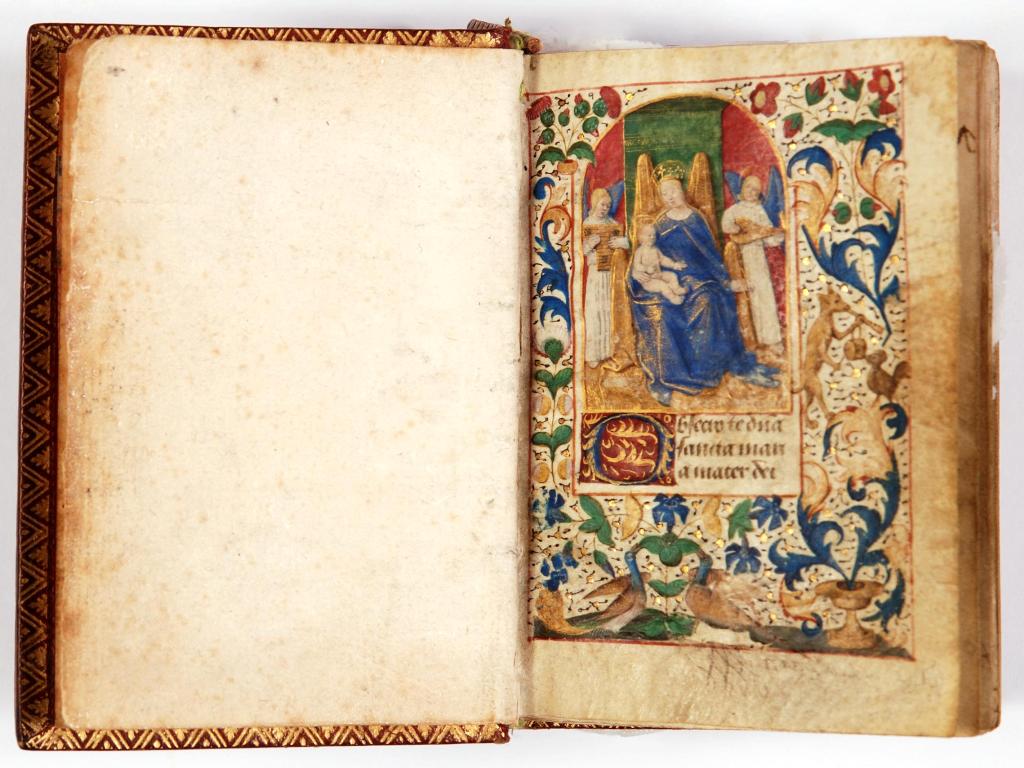 Obsecro te dna
sancta mari
a mater dei